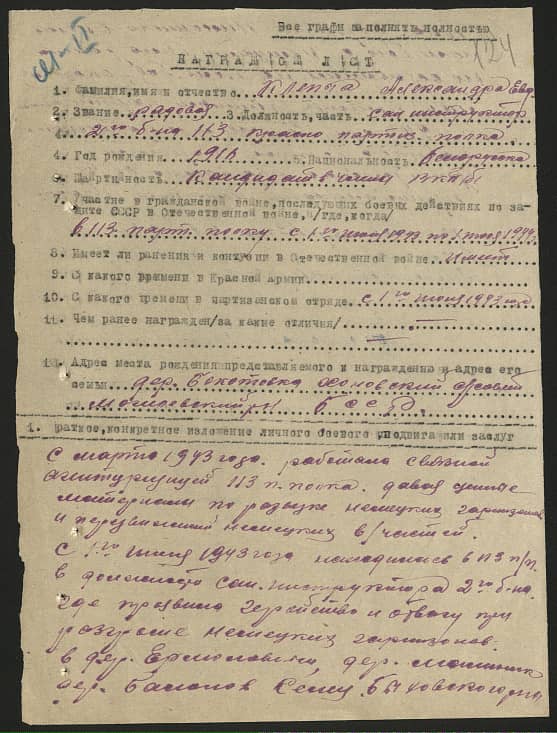 Все графы заполнять полностью
124
НАГРАДНОЙ ЛИСТ
1. Фамилия, имя и отчество Клепча Александра Евд
2. Звание рядовой 3. Должность, часть сан инструктор
2го б-на 113 красно партиз полка.
4. Год рождения 1918 5. Национальность белоруска
6. Партийность Кандидат в члены ВКП/б/
7. Участие в гражданской войне, последующих боевых действиях по за-
щите СССР в Отечественной войне, /где, когда/
в 113 парт. полку с 1го июня 1943 по 1 июля 1944г.
8. Имеет ли ранения и контузии в Отечественной войне. Имеет
9. С какого времени в Красной Армии.
10. С какого времени в партизанском отряде. с 1го июня 1943 года
11. Чем ранее награжден /за какие отличия/ —
12. Адрес места рождения представляемого к награждению и адрес его
семьи дер.
Могилевский БССР.
1. Краткое, конкретное изложение личного боевого подвига или заслуг
С марта 1943 года. работала связной
113 п. полка. давая ценные
материалы по розыске немецких гарнизонов
и передвижений немецких в/частей.
С 1го июня 1943 года находилась в 113 п/п.
в должности сан. инструктора 2го б-на.
где проявила геройство и отвагу при
разгроме немецких гарнизонов.
в дер. Ермоловичи, дер.
дер. Быховского р-на